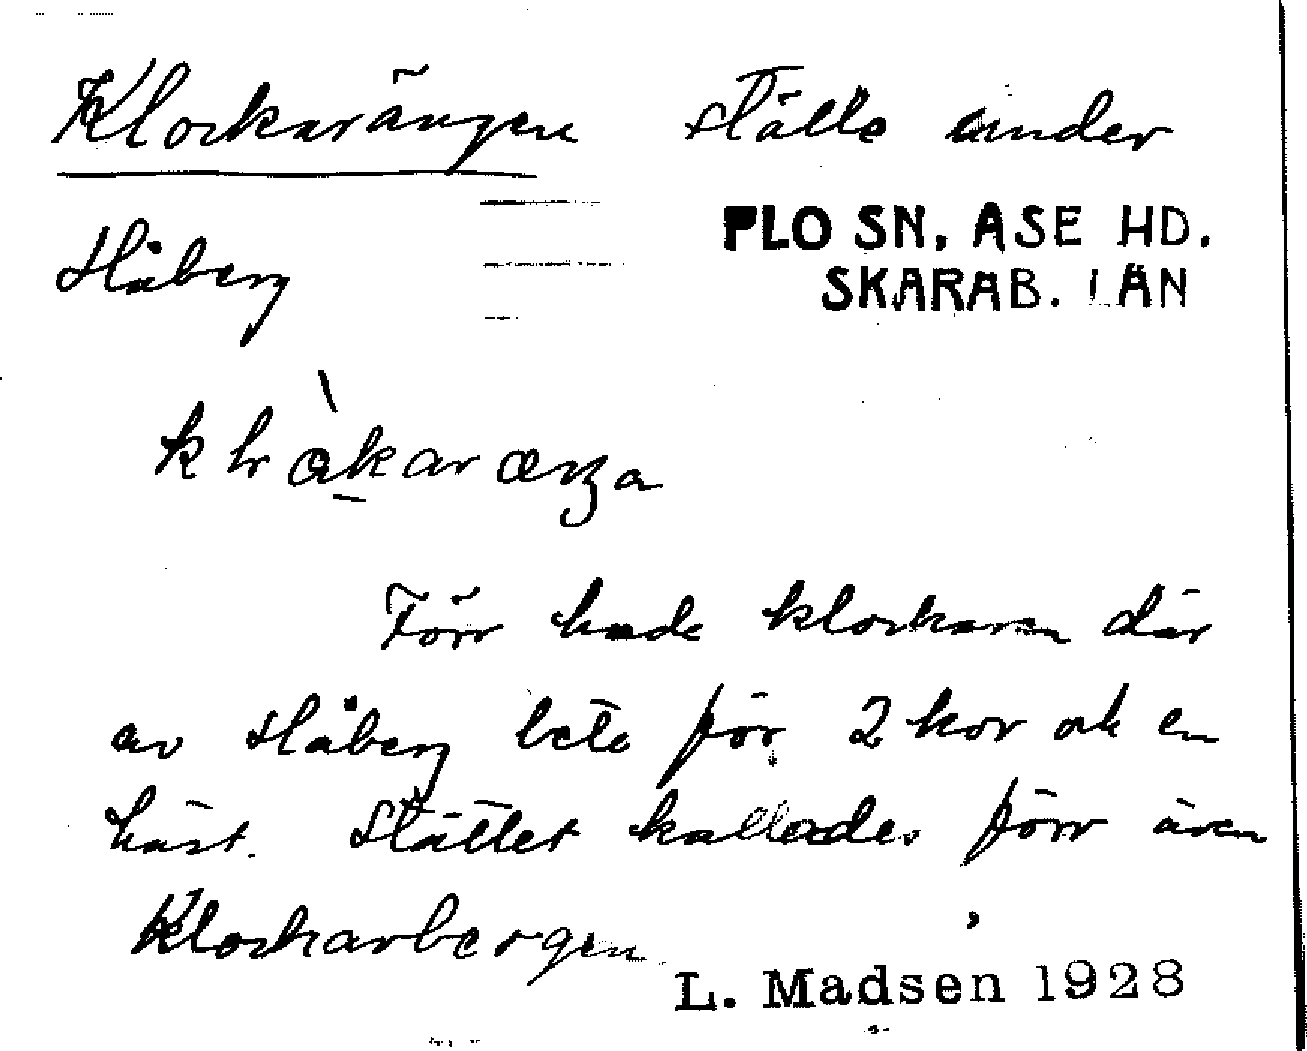 Klockarängen ställe under
FLO SN, ASE HD.
Håberg
SKARAB. LÄN
Förr hade klockaren där
av Håberg bete för 2 kor ock en
häst. Stället kallades förr även
Klockarbergen
L. Madsen 1928